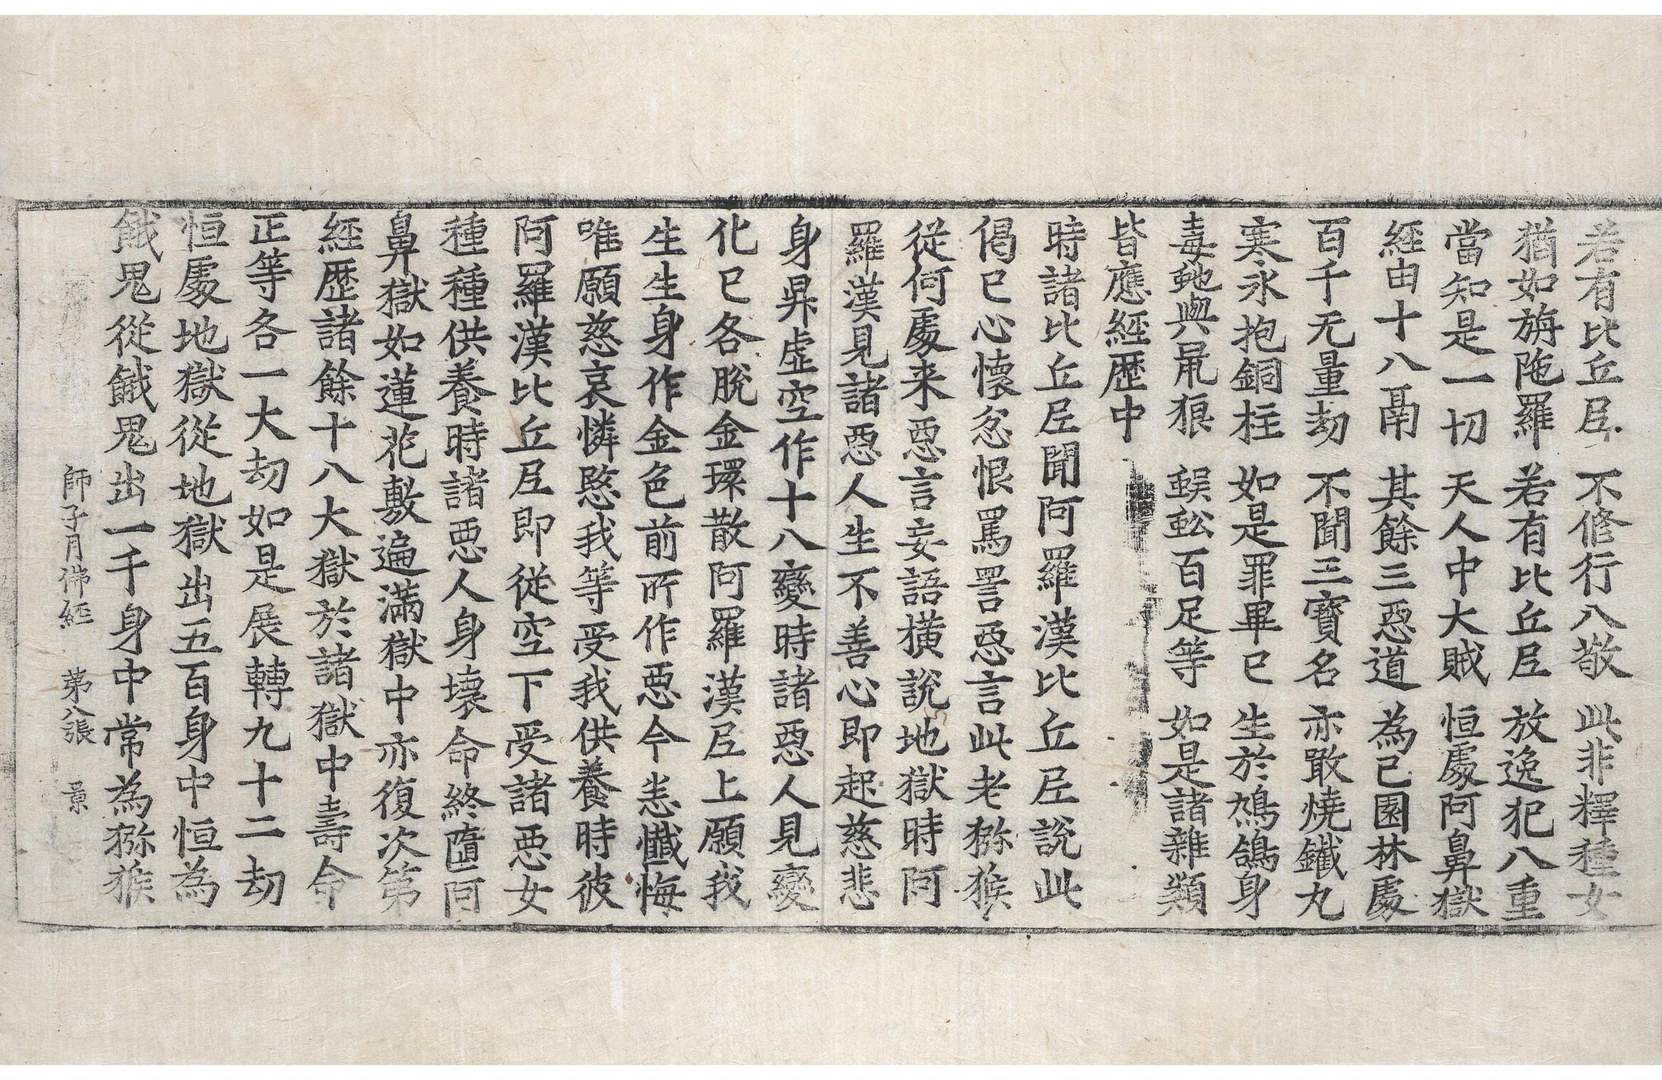 若有比丘尼 不修行八敬 此非釋種女
猶如旃陁羅 若有比丘尼 放逸犯八重
當知是一切 天人中大賊 恒處阿鼻獄
經由十八鬲 其餘三惡道 為己園林處
百千无量劫 不聞三寶名 亦敢燒鐵丸
寒氷抱銅柱 如是罪畢已 生於鳩鴿身
毒虵與鼠狼 蜈蚣百足等 如是諸雜類
皆應經歷中
時諸比丘尼聞阿羅漢比丘尼說此
偈已心懷忿恨罵詈惡言此老獼猴
從何處来惡言妄語橫說地獄時阿
羅漢見諸惡人生不善心即起慈悲
身昇虛空作十八變時諸惡人見變
化已各脫金環散阿羅漢尼上願我
生生身作金色前所作惡今悉懺悔
唯願慈哀憐愍我等受我供養時彼
阿羅漢比丘尼即從空下受諸惡女
種種供養時諸惡人身壞命終墮阿
鼻獄如蓮花敷遍滿獄中亦復次第
經歷諸餘十八大獄於諸獄中壽命
正等各一大劫如是展轉九十二劫
恒處地獄從地獄出五百身中恒為
餓鬼從餓鬼出一千身中常為獼猴
師子月佛經 第八張 景